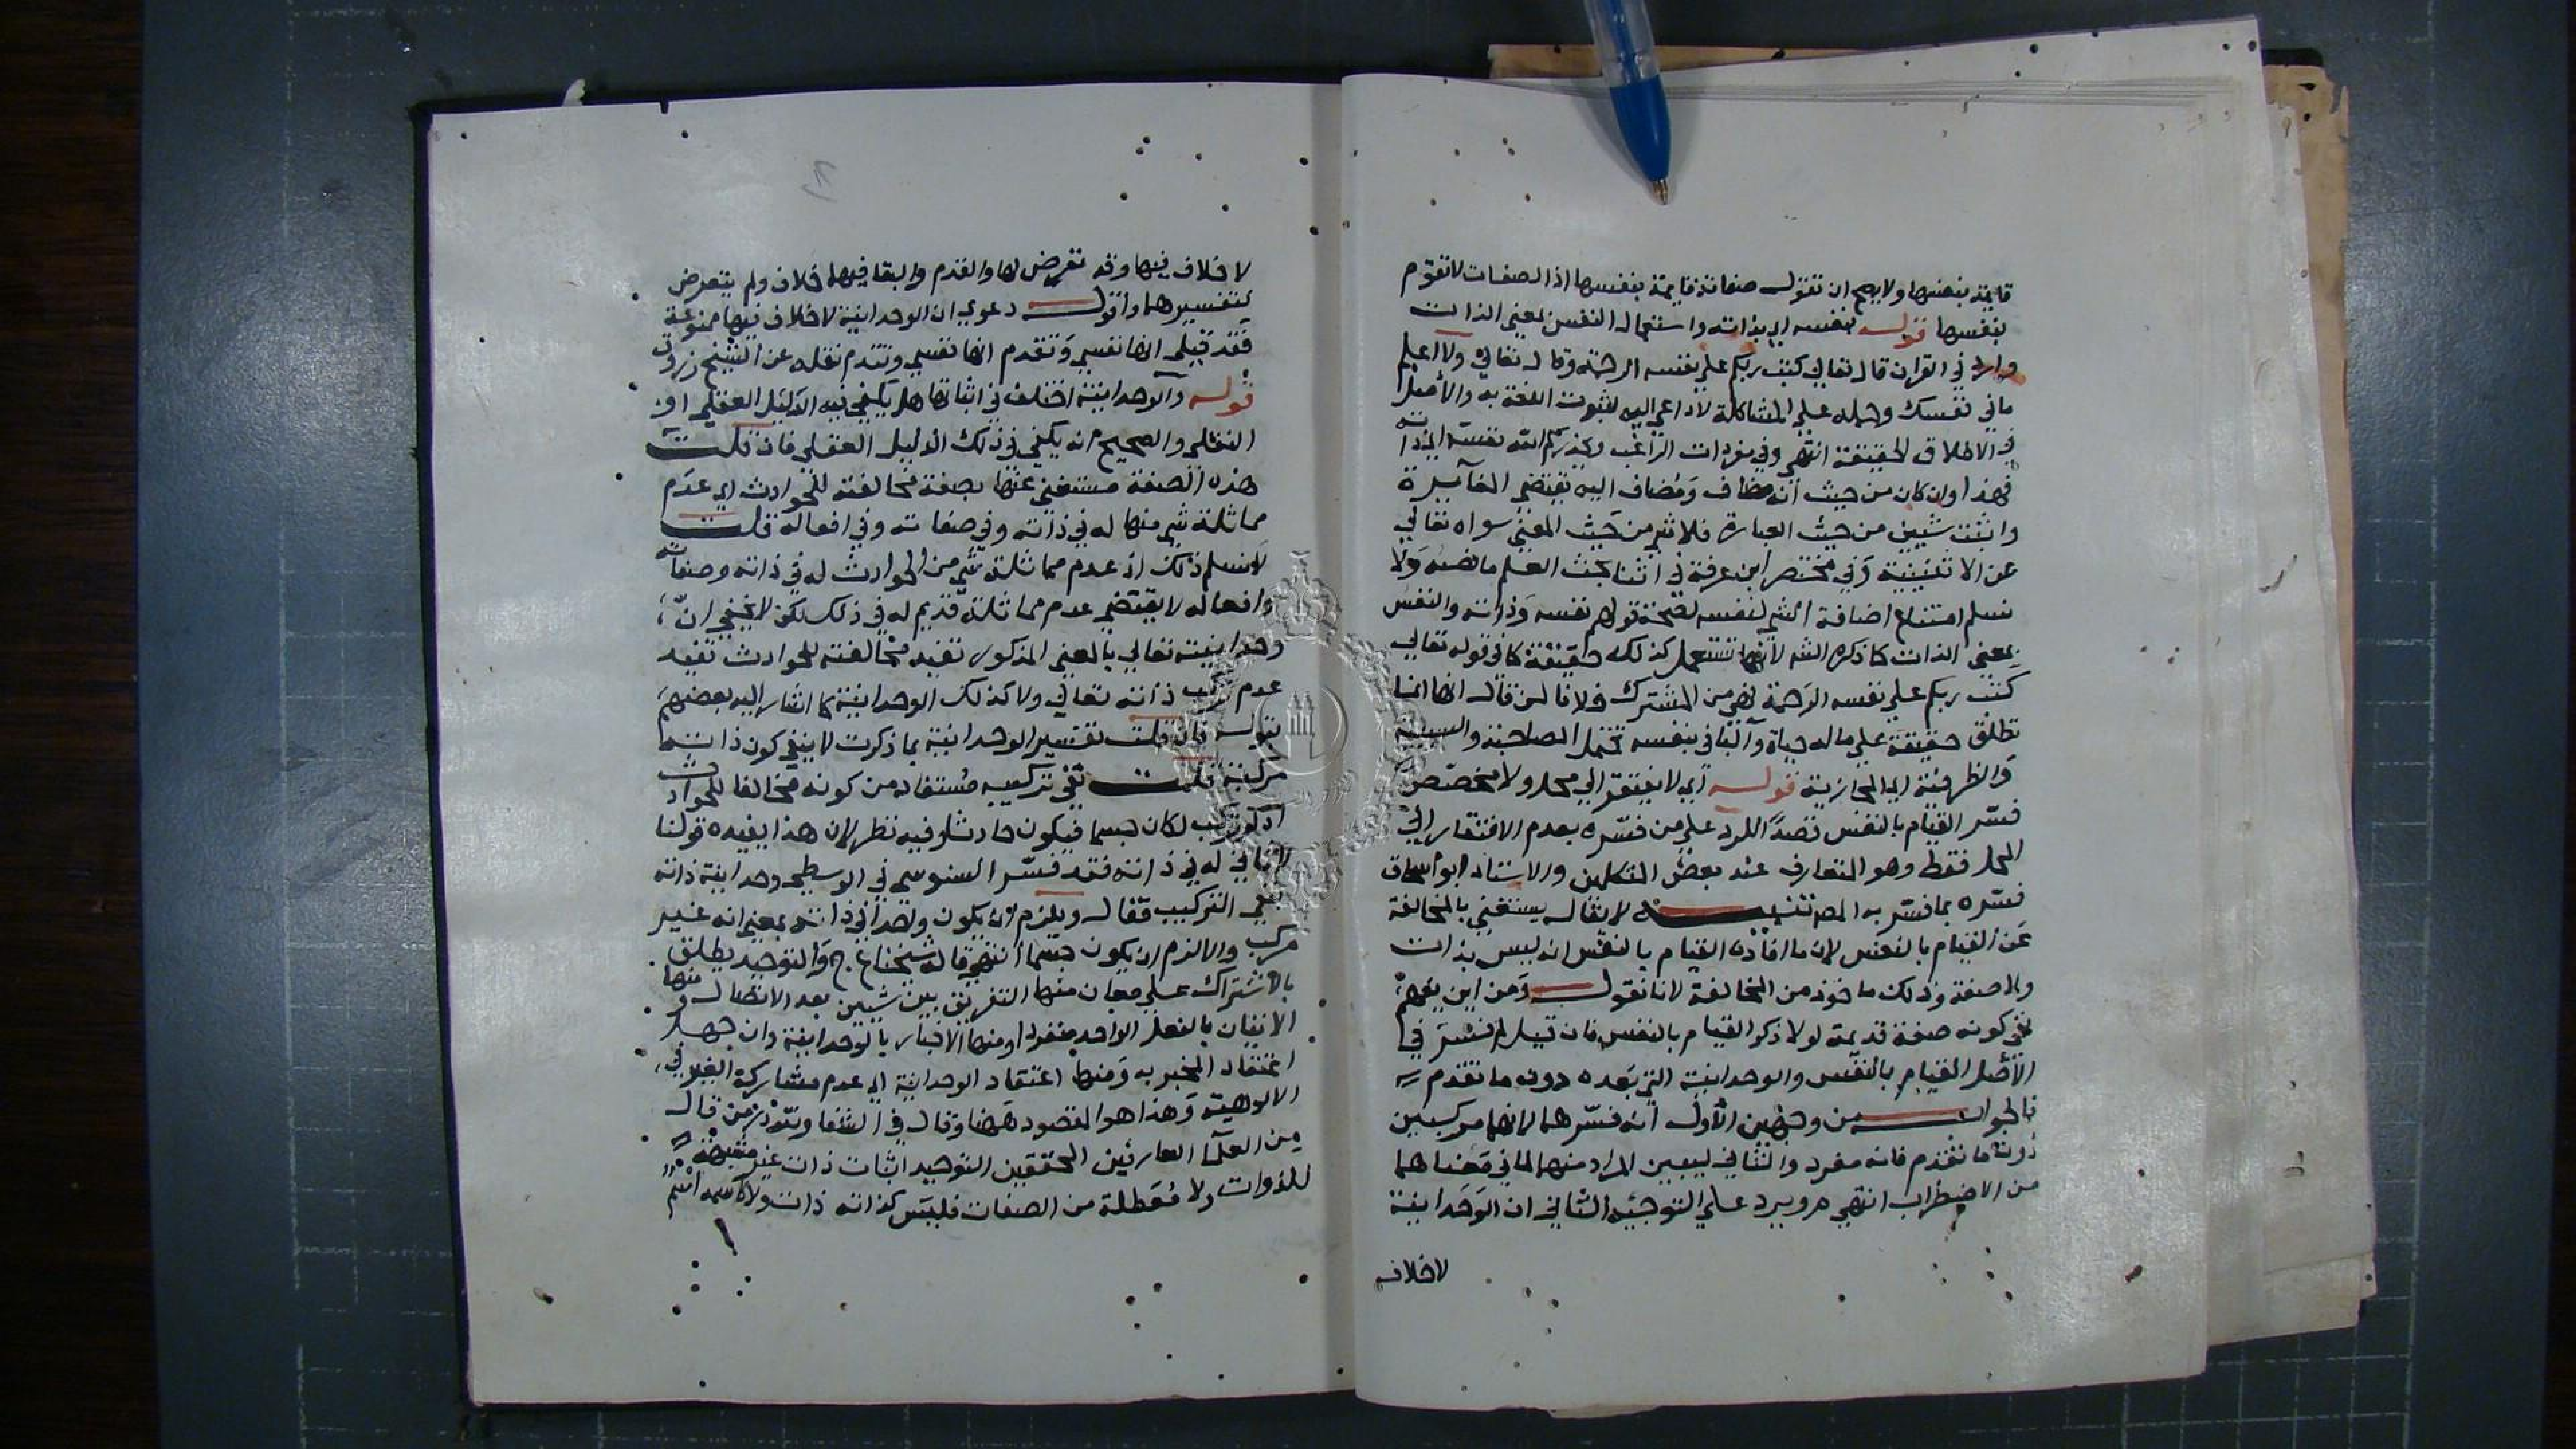 قايمة بنفسها ولا يصح ان تقول صفاته قايمة بنفسها اذ الصفات لا تقوم
بنفسها قوله بنفسه اي بذاته واستعمال النفس بمعني الذات
وارد في القران قال تعالي كتب ربكم علي نفسه الرحمة وقال تعالي ولا اعلم
ما في نفسك وحمله علي المشاكلة لا داعي اليه لثبوت اللغة به والأصل
في الاطلاق الحقيقة انتهي وفي مفردات الراغب ويحذركم الله نفسه اي ذاته
فهذا وان كان من حيث انه مضاف ومضاف اليه يقتضي المغايرة
واثبت شيين من حيث العبارة فلا شي من حيث المعني سواه تعالي
عن الاثنينية وفي مختصر ابن عرفة في اثنا بحث العلم ما نصه ولا
نسلم امتناع اضافة الشي لنفسه لصحة قولهم نفسه وذاته والنفس
بمعني الذات كما ذكره الشه لانها تستعمل كذلك حقيقة كما في قوله تعالي
كتب ربكم علي نفسه الرحمة فهي من المشترك خلافا لمن قال انها انما
تطلق حقيقة علي ما له حياة والبا في بنفسه تحتمل المصاحبة والسببية
والظرفية اي المجازية قوله اي لا يفتقر الي محل ولا مخصص
فسّر القيام بالنفس قصدًا للرد علي من فسّره بعدم الافتقار الي
المحل فقط وهو المتعارف عند بعض المتكلمين والاستاد ابو اسحاق
فسّره بما فسّر به المص تنبيه لا يقال يستغني بالمخالفة
عن القيام بالنفس لان ما افاده القيام بالنفس انه ليس بذات
ولا صفة وذلك ماخوذ من المخالفة لانا نقول ومن اين يفهم
نفي كونه صفة قديمة لولا ذكر القيام بالنفس فان قيل لم فسّر في
الأصل القيام بالنفس والوحدانية التي بعده دون ما تقدم
فالجواب من وجهين الأول انه فسّرهما لانهما مركبين
دون ما تقدم فانه مفرد والثاني ليبين المراد منهما لما في معناهما
من الاضطراب انتهي ويرد علي التوجيه الثاني ان الوحدانية
لا خلاف
لا خلاف فيها وقد تعرض لها والقدم والبقا فيهما خلاف ولم يتعرض
لتفسيرهما واقول دعوي ان الوحدانية لا خلاف فيها ممنوعة
فقد قيل انها نفسي وتقدم انها نفسي وتقدم نقله عن الشيخ زروق
قوله والوحدانية اختلف في اثباتها هل يكفي فيه الدليل العقلي او
النقلي والصحيح انه يكفي في ذلك الدليل العقلي فان قلت
هذه الصفة مستغني عنها بصفة مخالفته للحوادث اي عدم
مماثلة شي منها له في ذاته وفي صفاته وفي افعاله قلت
لا نسلم ذلك اذ عدم مماثلة شي من الحوادث له في ذاته وصفاته
وافعاله لا يقتضي عدم مماثلة قديم له في ذلك لكن لا يخفي انّ
وحدانيته تعالي بالمعني المذكور تفيد مخالفته للحوادث تفيد
عدم تركب ذاته تعالي ولا كذلك الوحدانية كما اشار اليه بعضهم
بقوله فان قلت تفسير الوحدانية بما ذكرت لا ينفي كون ذاته
مركبة قلت نفي تركيبه مستفاد من كونه مخالفا للحوادث
اذ لو تركب لكان جسما فيكون حادثا وفيه نظر لان هذا يفيده قولنا
لا ثاني له في ذاته فقد فسّر السنوسي في الوسطي وحدانية ذاته
بنفي التركيب فقال ويلزم ان يكون واحدا في ذاته بمعني انه غير
مركب والا لزم ان يكون جسما انتهي قاله شيخنا ع ج والتوحيد يطلق
بالاشتراك علي معان منها التفريق بين شيين بعد الاتصال ومنها
الاتيان بالفعل الواحد منفردا ومنها الاخبار بالوحدانية وان جهل
اعتقاد المخبر به ومنها اعتقاد الوحدانية اي عدم مشاركة الغير في
الالوهية وهذا هو المقصود هنا وقال في الشفا ولله در من قال
من العلما العارفين المحققين التوحيد اثبات ذات غير مشبهة
للذوات ولا معطلة من الصفات فليس كذاته ذات ولا كاسمه اسم